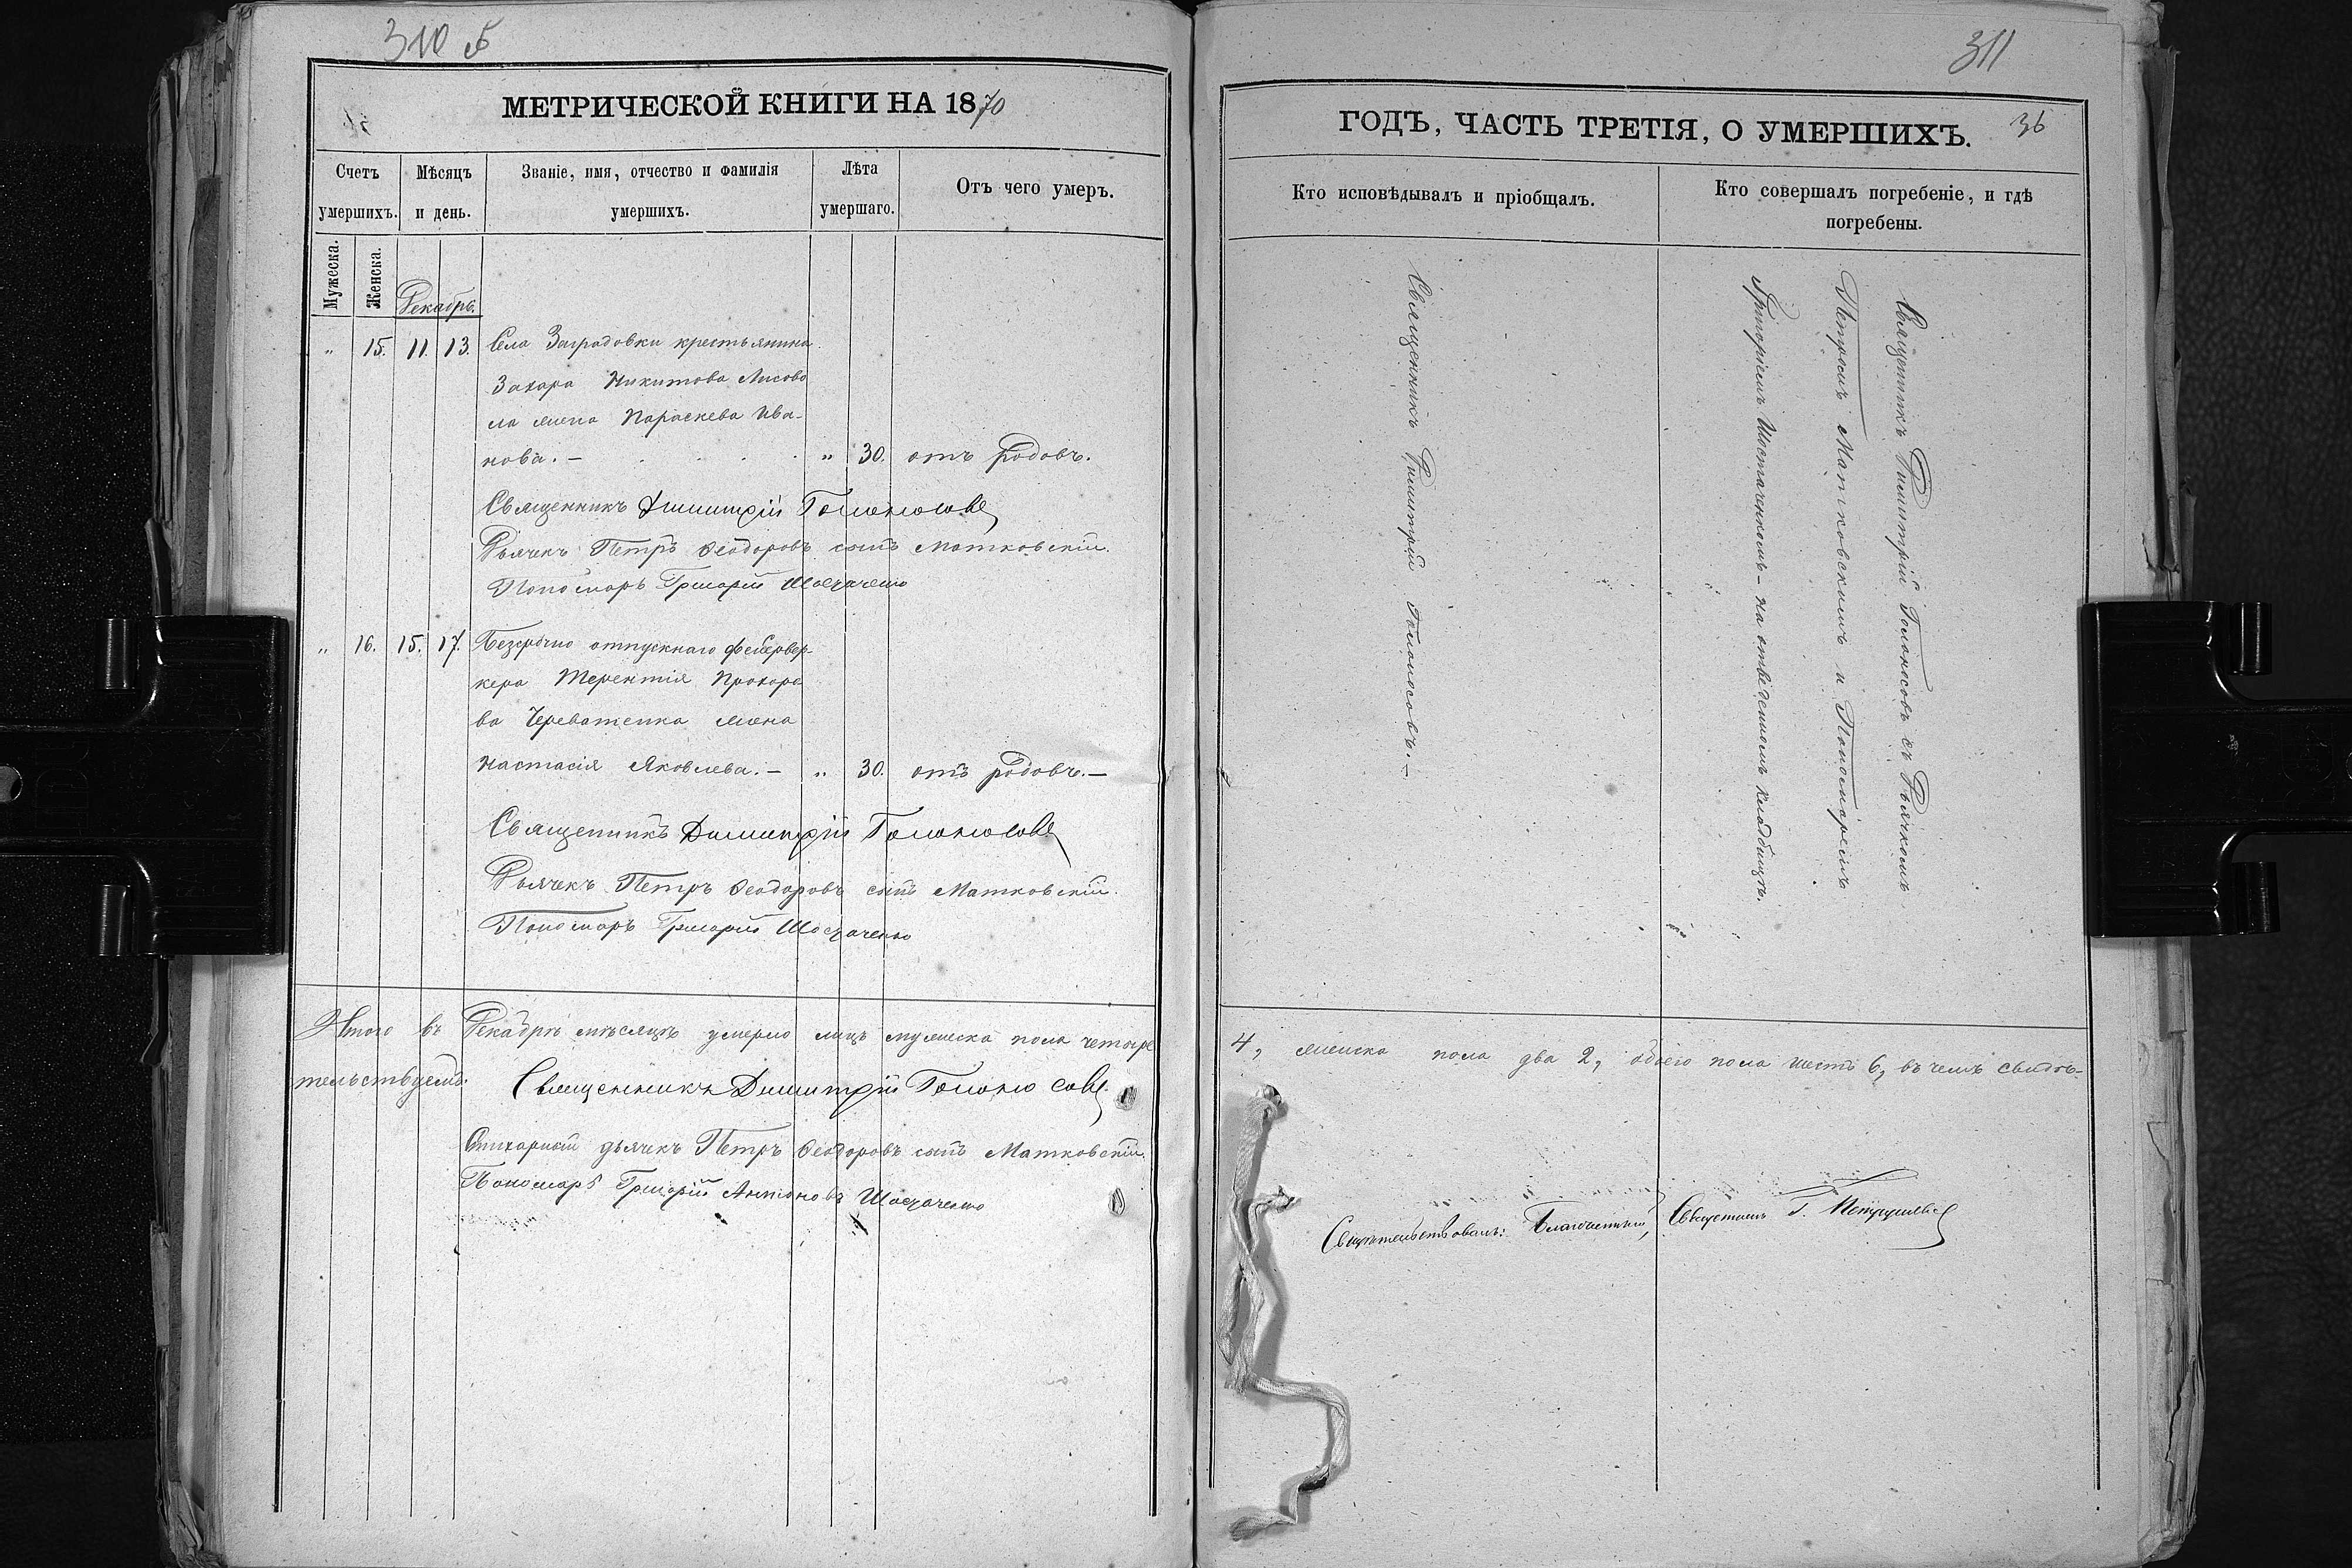 310
МЕТРИЧЕСКОЙ КНИГИ НА 1870
Счетъ умершихъ.
Мѣсяцъ и день.
Званіе, имя, отчество и фамилія умершихъ.
Лѣта умершаго.
Отъ чего умеръ.
Мужеска.
Женска.
Декабрь.
" 15. 11. 13. Села Заградовки крестьянина
Захара Никитова Лисово
ла жена Параскева Ива-
нова. — " 30. отъ родовъ.
Священникъ Димитрій Голоносовъ
Дьячекъ Петръ Ѳеодоровъ сынъ Матковскій.
Пономарь Григорій Шостаченко
" 16. 15. 17. Безсрочно отпускнаго фейервер-
кера Терентія Прохоро
ва Череватенка жена
Настасія Яковлева. — " 30. отъ родовъ. —
Священникъ Димитрій Голоносовъ
Дьячекъ Петръ Ѳеодоровъ сынъ Матковскій.
Пономарь Григорій Шостаченко
Итого въ Декабрѣ мѣсяцѣ умерло лицъ мужеска пола четыре
тельствуемъ.
Священникъ Димитрій Голоносовъ
Стихарный дьячекъ Петръ Ѳеодоровъ сынъ Матковскій.
Пономарь Григорій Антоновъ Шостаченко
311
ГОДЪ, ЧАСТЬ ТРЕТІЯ, О УМЕРШИХЪ. 36
Кто исповѣдывалъ и пріобщалъ.
Кто совершалъ погребеніе, и гдѣ
погребены.
Священникъ Димитрій Голоносовъ. —
Священникъ Димитрій Голоносовъ съ Дьячкомъ
Петромъ Матковскимъ и Пономаремъ
Григоріемъ Шостаченкомъ — на отведенномъ кладбищѣ.
4, женска пола два 2, обоего пола шесть 6, въ чемъ свидѣ-
Свидѣтельствовалъ: Благочинный, Священникъ Г.